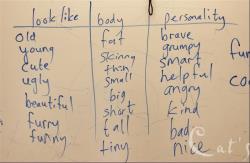 look like body personality
old fat brave
young skinny grumpy
cute thin smart
ugly small helpful
beautiful big angry
furry short kind
funny tall bad
tiny nice
fur
co
cat's